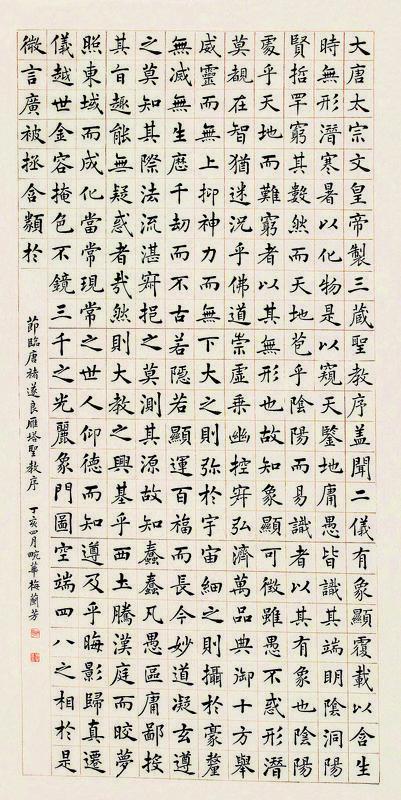 大唐太宗文皇帝製三蔵聖教序盖聞二儀有象顯覆載以含生
時無形潛寒暑以化物是以窺天鑒地庸愚皆識其端明陰洞陽
賢哲罕窮其數然而天地苞乎陰陽而易識者以其有象也陰陽
處乎天地而難窮者以其無形也故知象顯可徵雖愚不惑形潛
莫覩在智猶迷況乎佛道崇虛乘幽控寂弘濟萬品典御十方舉
威靈而無上抑神力而無下大之則弥於宇宙細之則攝於豪釐
無滅無生歷千劫而不古若隱若顯運百福而長今妙道凝玄遵
之莫知其際法流湛寂挹之莫測其源故知蠢蠢凡愚區庸鄙投
其旨趣能無疑惑者哉然則大教之興基乎西土騰漢庭而皎夢
照東域而成化當常現常之世人仰德而知遵及乎晦影歸真遷
儀越世金容掩色不鏡三千之光麗象門圖空端四八之相於是
微言廣被拯含類於
節臨唐褚遂良雁塔聖教序 丁亥四月皖華梅蘭芳